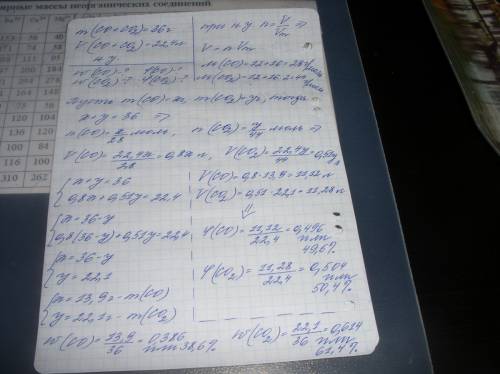 ярные массы неорганических соединений
m(CO+CO₂)=36г
V(CO+CO₂)=22,4л
н.у.
w(CO)-? φ(CO)-?
w(CO₂)-? φ(CO₂)-?
при н.у. n=V/Vm ⇒
V=n·Vm
M(CO)=12+16=28 г/моль
M(CO₂)=12+16·2=44 г/моль
Пусть m(CO)=xг, m(CO₂)=yг, тогда
x+y=36 ⇒
n(CO)=x/28 моль, n(CO₂)=y/44 моль ⇒
V(CO)=22,4x/28=0,8x л, V(CO₂)=22,4y/44=0,51y л
{x+y=36
0,8x+0,51y=22,4
{x=36-y
0,8(36-y)+0,51y=22,4
{x=36-y
y=22,1
{x=13,9г - m(CO)
y=22,1г - m(CO₂)
V(CO)=0,8·13,9=11,12 л
V(CO₂)=0,51·22,1=11,28 л
⇓
φ(CO)=11,12/22,4=0,496
или
49,6%
φ(CO₂)=11,28/22,4=0,504
или
50,4%
w(CO)=13,9/36=0,386
или 38,6%
w(CO₂)=22,1/36=0,614
или
61,4%